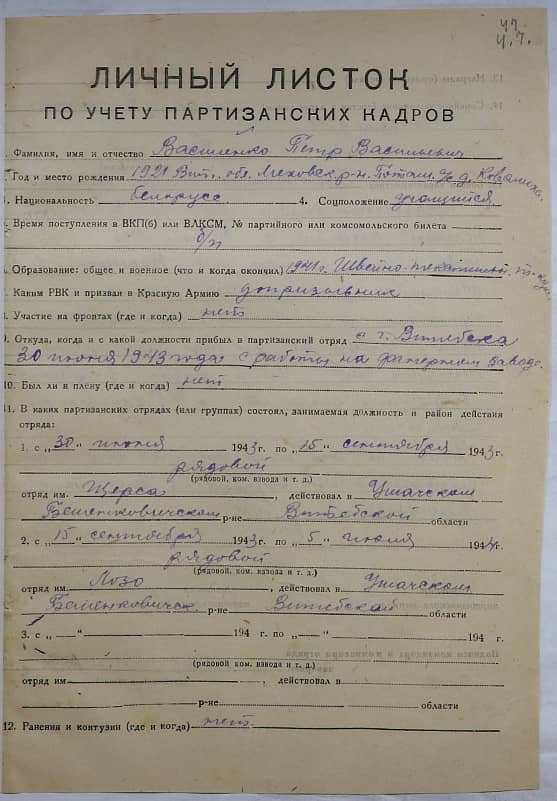 ЛИЧНЫЙ ЛИСТОК
ПО УЧЕТУ ПАРТИЗАНСКИХ КАДРОВ
Фамилия, имя и отчество Василенко Петр Васильевич
Год и место рождения 1921 Вит. обл. Меховск. р-н.
3. Национальность белорусс 4. Соцположение учащийся
Время поступления в ВКП(б) или ВЛКСМ, № партийного или комсомольского билета
б/п
Образование: общее и военное (что и когда окончил) 1941 г. Швейно-
7. Каким РВК и призван в Красную Армию допризывник
8. Участие на фронтах (где и когда) нет
9. Откуда, когда и с какой должности прибыл в партизанский отряд с г. Витебска
30 июня 1943 года с работы на фанерном заводе.
10. Был ли в плену (где и когда) нет
11. В каких партизанских отрядах (или группах) состоял, занимаемая должность и район действия
отряда:
1. с „30“ июня 1943 г. по „15“ сентября 1943 г.
рядовой
(рядовой, ком. взвода и т. д.)
отряд им. Щерса, действовал в Ушачском
Бешенковичском р-не Витебской области
2. с „15“ сентября 1943 г. по „5“ июля 1944 г.
рядовой
(рядовой, ком. взвода и т. д.)
отряд им. Лазо, действовал в Ушачском
Бешенковичск. р-не Витебской области
3. с „ “ 194 г. по „ “ 194 г.
(рядовой, ком. взвода и т. д.)
отряд им. , действовал в
р-не области
12. Ранения и контузии (где и когда) нет